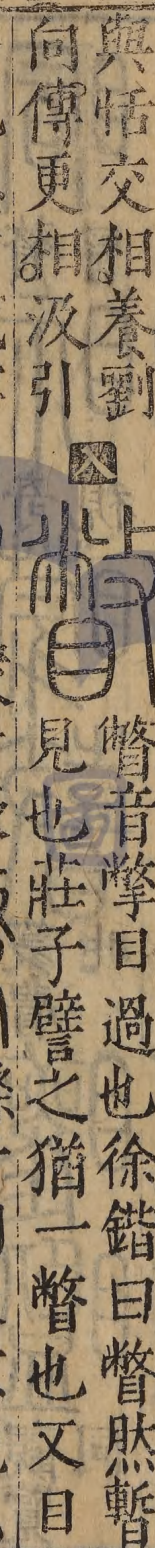 與恬交相養劉
向傳更相汲引
入
瞥
瞥音撆目過也徐鍇曰瞥然暫
見也莊子譬之猶一瞥也又目